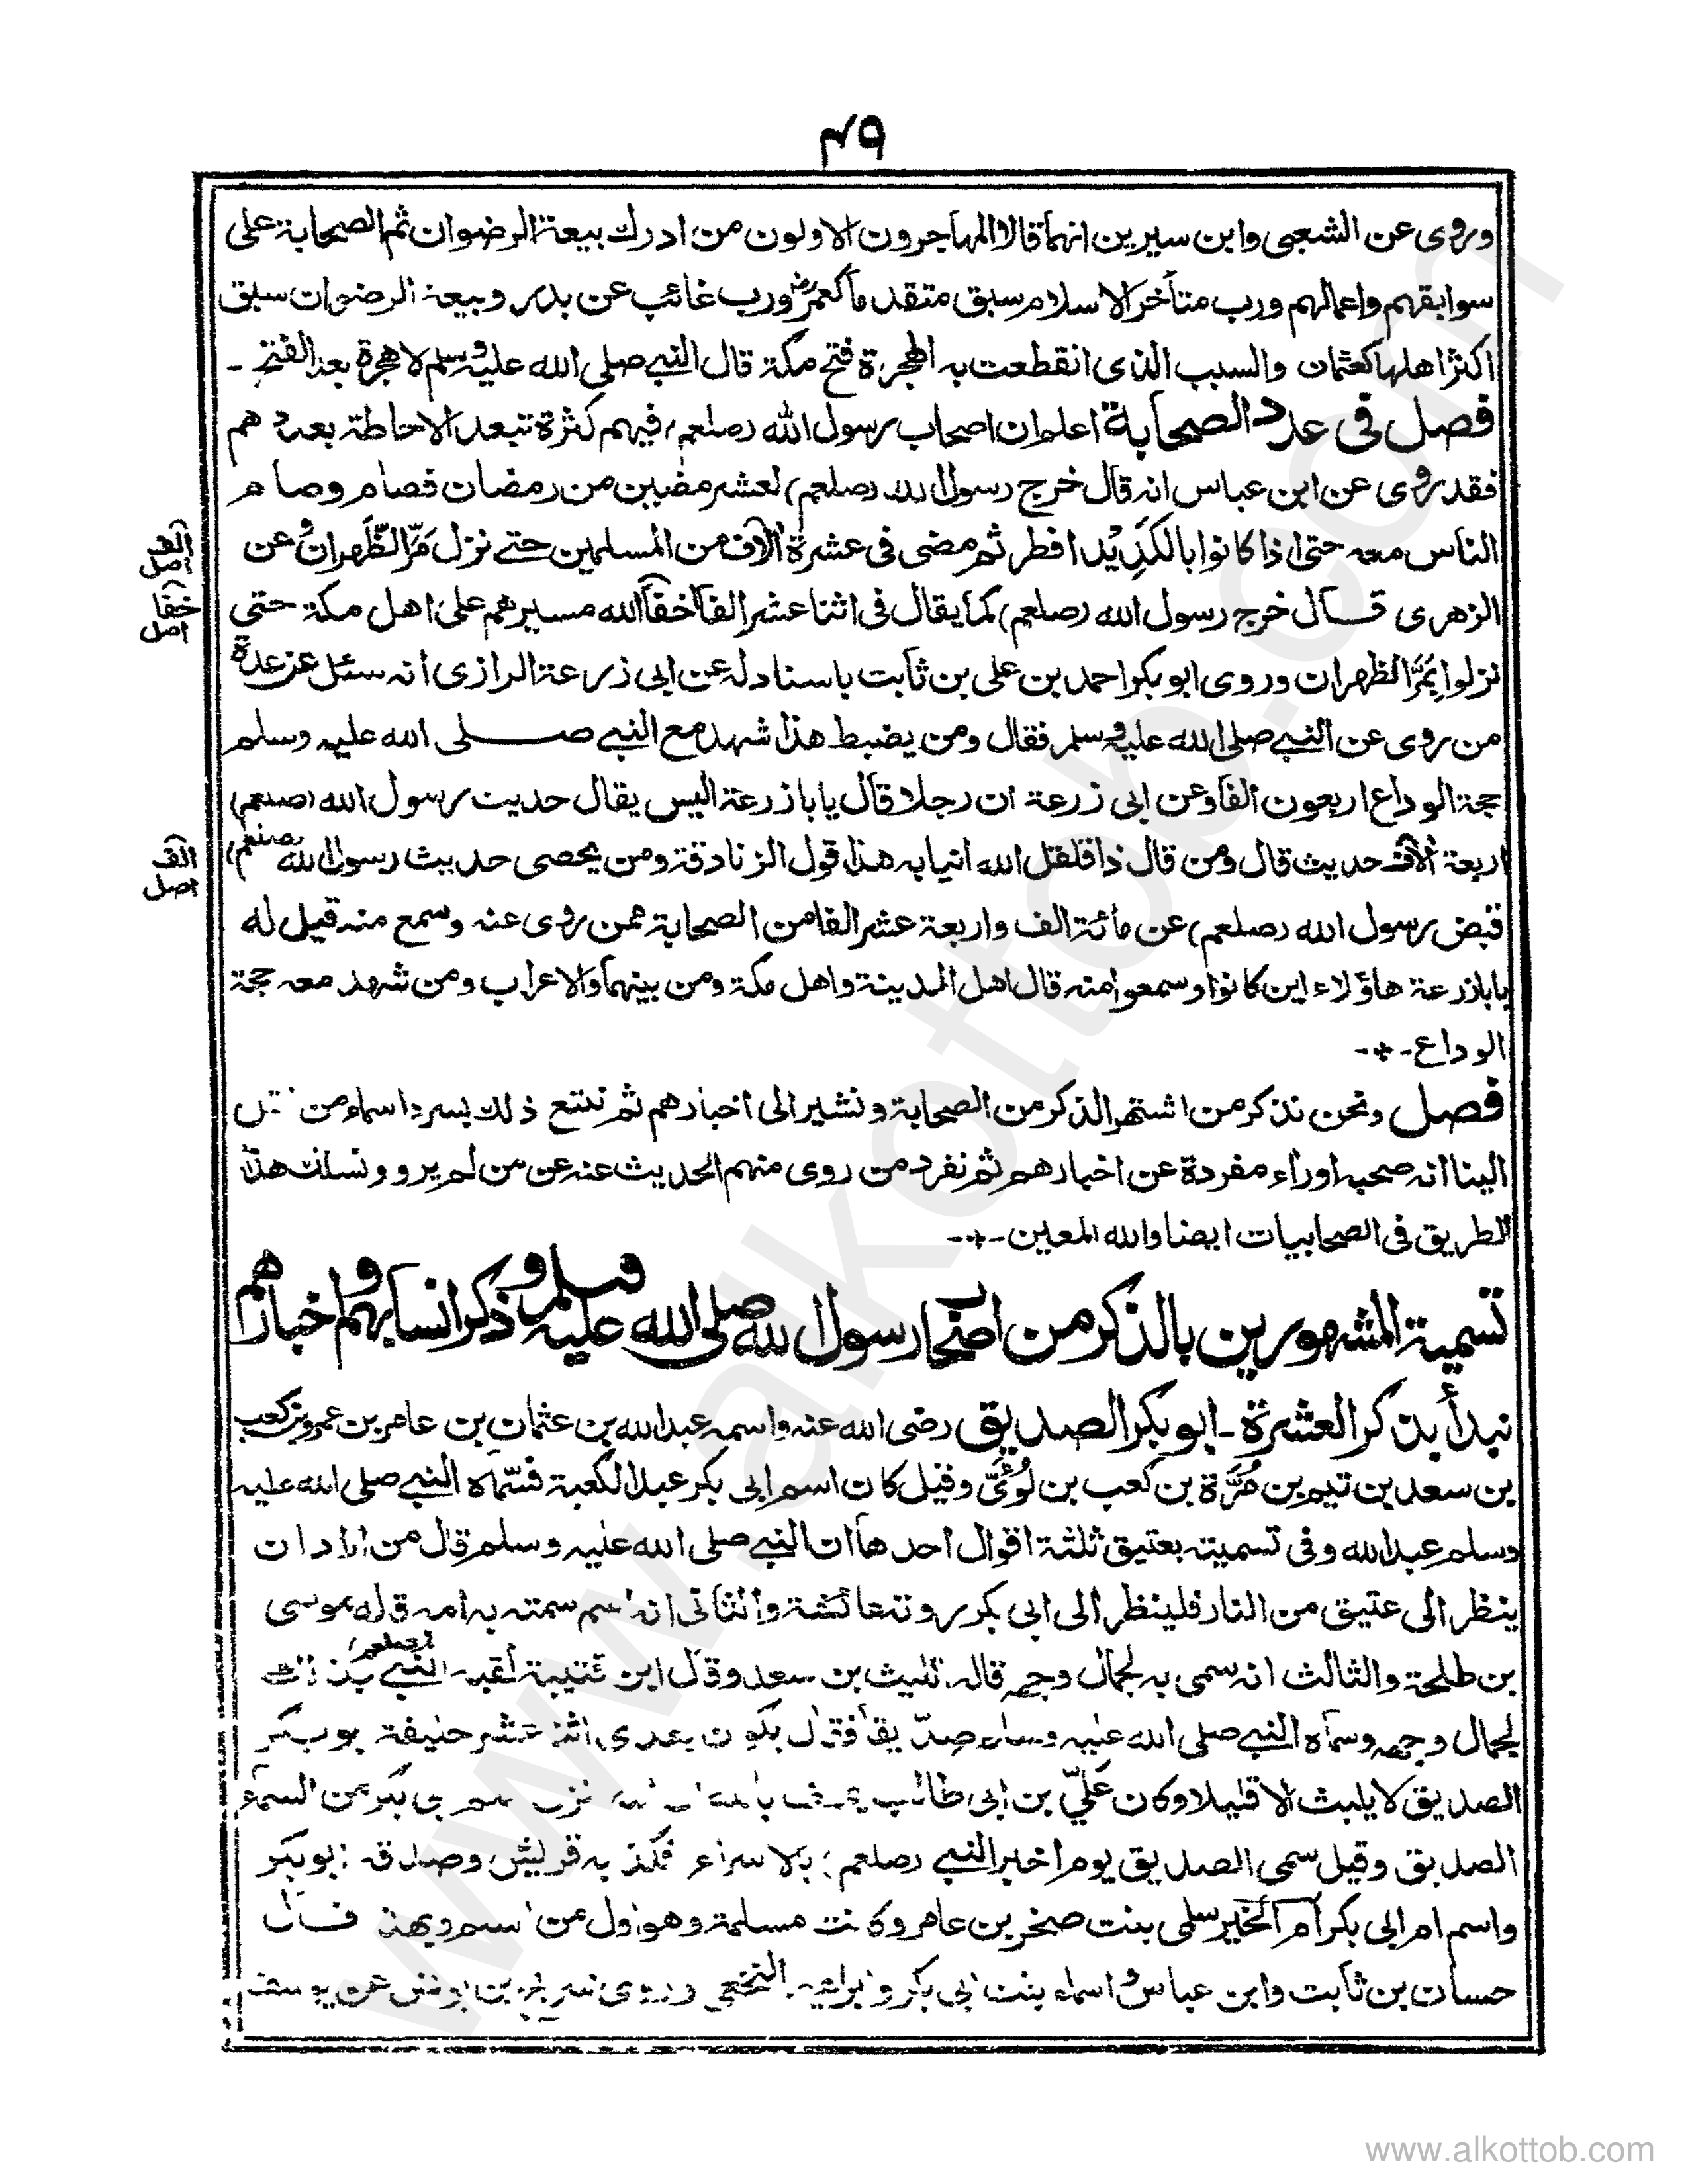 ٤٩
وروى عن الشعبى وابن سيرين انهما قالا المهاجرون الاولون من ادرك بيعة الرضوان ثم الصحابة على
سوابقهم واعمالهم ورب متأخر الاسلام سبق متقدما كعمر رض ورب غائب عن بدر وبيعة الرضوان سبق
اكثر اهلها كعثمان والسبب الذى انقطعت به الهجرة فتح مكة قال النبى صلى الله عليه وسلم لا هجرة بعد الفتح -
فصل فى عدد الصحابة اعلم ان اصحاب رسول الله (صلعم) فيهم كثرة تبعد الاحاطة بعددهم
فقد روى عن ابن عباس انه قال خرج رسول الله (صلعم) لعشر مضين من رمضان فصام وصام
الناس معه حتى اذا كانوا بالكَدِيْد افطر ثم مضى فى عشرة آلاف من المسلمين حتى نزل مَرّ الظَّهران وعن
الزهرى قال خرج رسول الله (صلعم) كما يقال فى اثنا عشر الفاً خفاً الله مسيرهم على اهل مكة حتى
نزلوا بِمَرّ الظهران وروى ابو بكر احمد بن على بن ثابت باسناد له عن ابى زرعة الرازى انه سئل عن عدة
من روى عن النبى صلى الله عليه وسلم فقال ومن يضبط هذا شهد مع النبى صلى الله عليه وسلم
حجة الوداع اربعون الفا وعن ابى زرعة ان رجلا قال يا با زرعة اليس يقال حديث رسول الله (صلعم)
اربعة آلاف حديث قال ومن قال ذا قلقل الله انيابه هذا قول الزنادقة ومن يحصى حديث رسول الله (صلعم)
قبض رسول الله (صلعم) عن مائة الف واربعة عشر الفا من الصحابة ممن روى عنه وسمع منه قيل له
يا با زرعة هاؤلاء اين كانوا وسمعوا منه قال اهل المدينة واهل مكة ومن بينهما والاعراب ومن شهد معه حجة
الوداع -*-
فصل ونحن نذكر من اشتهر الذكر من الصحابة ونشير الى اخبارهم ثم نتبع ذلك بسرد اسماء من
الينا انه صحبه او راٰه مفردة عن اخبارهم ثم نفرد من روى منهم الحديث عنه عن من لم يرو ونسلك هذا
الطريق فى الصحابيات ايضا والله المعين -*-
تسمية المشهورين بالذكر من اصحاب رسول الله صلى الله عليه وسلم وذكر انسابهم واخبارهم
نبدأ بذكر العشرة - ابو بكر الصديق رضى الله عنه واسمه عبد الله بن عثمان بن عامر بن عمرو بن كعب
بن سعد بن تيم بن مُرَّة بن كعب بن لُوَىّ وقيل كان اسم ابى بكر عبد الكعبة فسّماه النبى صلى الله عليه
وسلم عبد الله وفى تسميته بعتيق ثلثة اقوال احدها ان النبى صلى الله عليه وسلم قال من اراد ان
ينظر الى عتيق من النار فلينظر الى ابى بكر روته عائشة والثانى انه اسم سمته به امه قاله موسى
بن طلحة والثالث انه سمى به لجمال وجهه قاله الليث بن سعد وقال ابن قتيبة لقبه النبى (صلعم) بذلك
لجمال وجهه وسماه النبى صلى الله عليه وسلم صدّيقا فقال يكون بعدى اثنا عشر خليفة ابو بكر
الصديق لا يلبث الا قليلا وكان عَلِيّ بن ابى طالب يحلف بالله ان الله انزل اسم ابى بكر من السماء
الصديق وقيل سمى الصديق يوم اخبر النبى (صلعم) بالاسراء فكذبه قريش وصدقه ابو بكر
واسم ام ابى بكر ام الخير سلمى بنت صخر بن عامر وكانت مسلمة وهو اول من اسلم وبهذا قال
حسان بن ثابت وابن عباس واسماء بنت ابى بكر وابراهيم النخعى وروى شريح بن يونس عن يوسف
الف
اصل
خفا
اصل
الف
اصل
www.alkottob.com